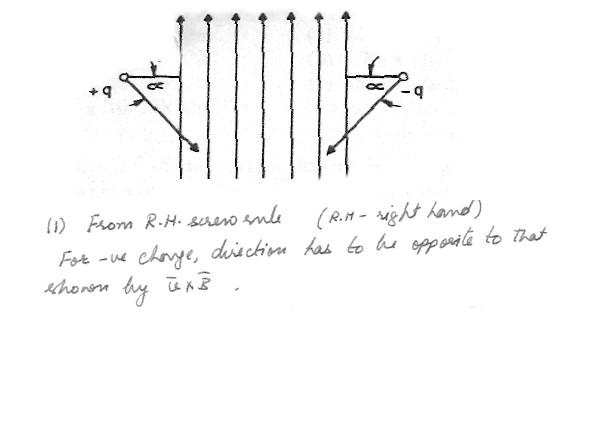 +q
∝
∝
-q
(1) From R.H. screw rule (R.H - right hand)
For -ve charge, direction has to be opposite to that
shown by u̅ x B̅ .